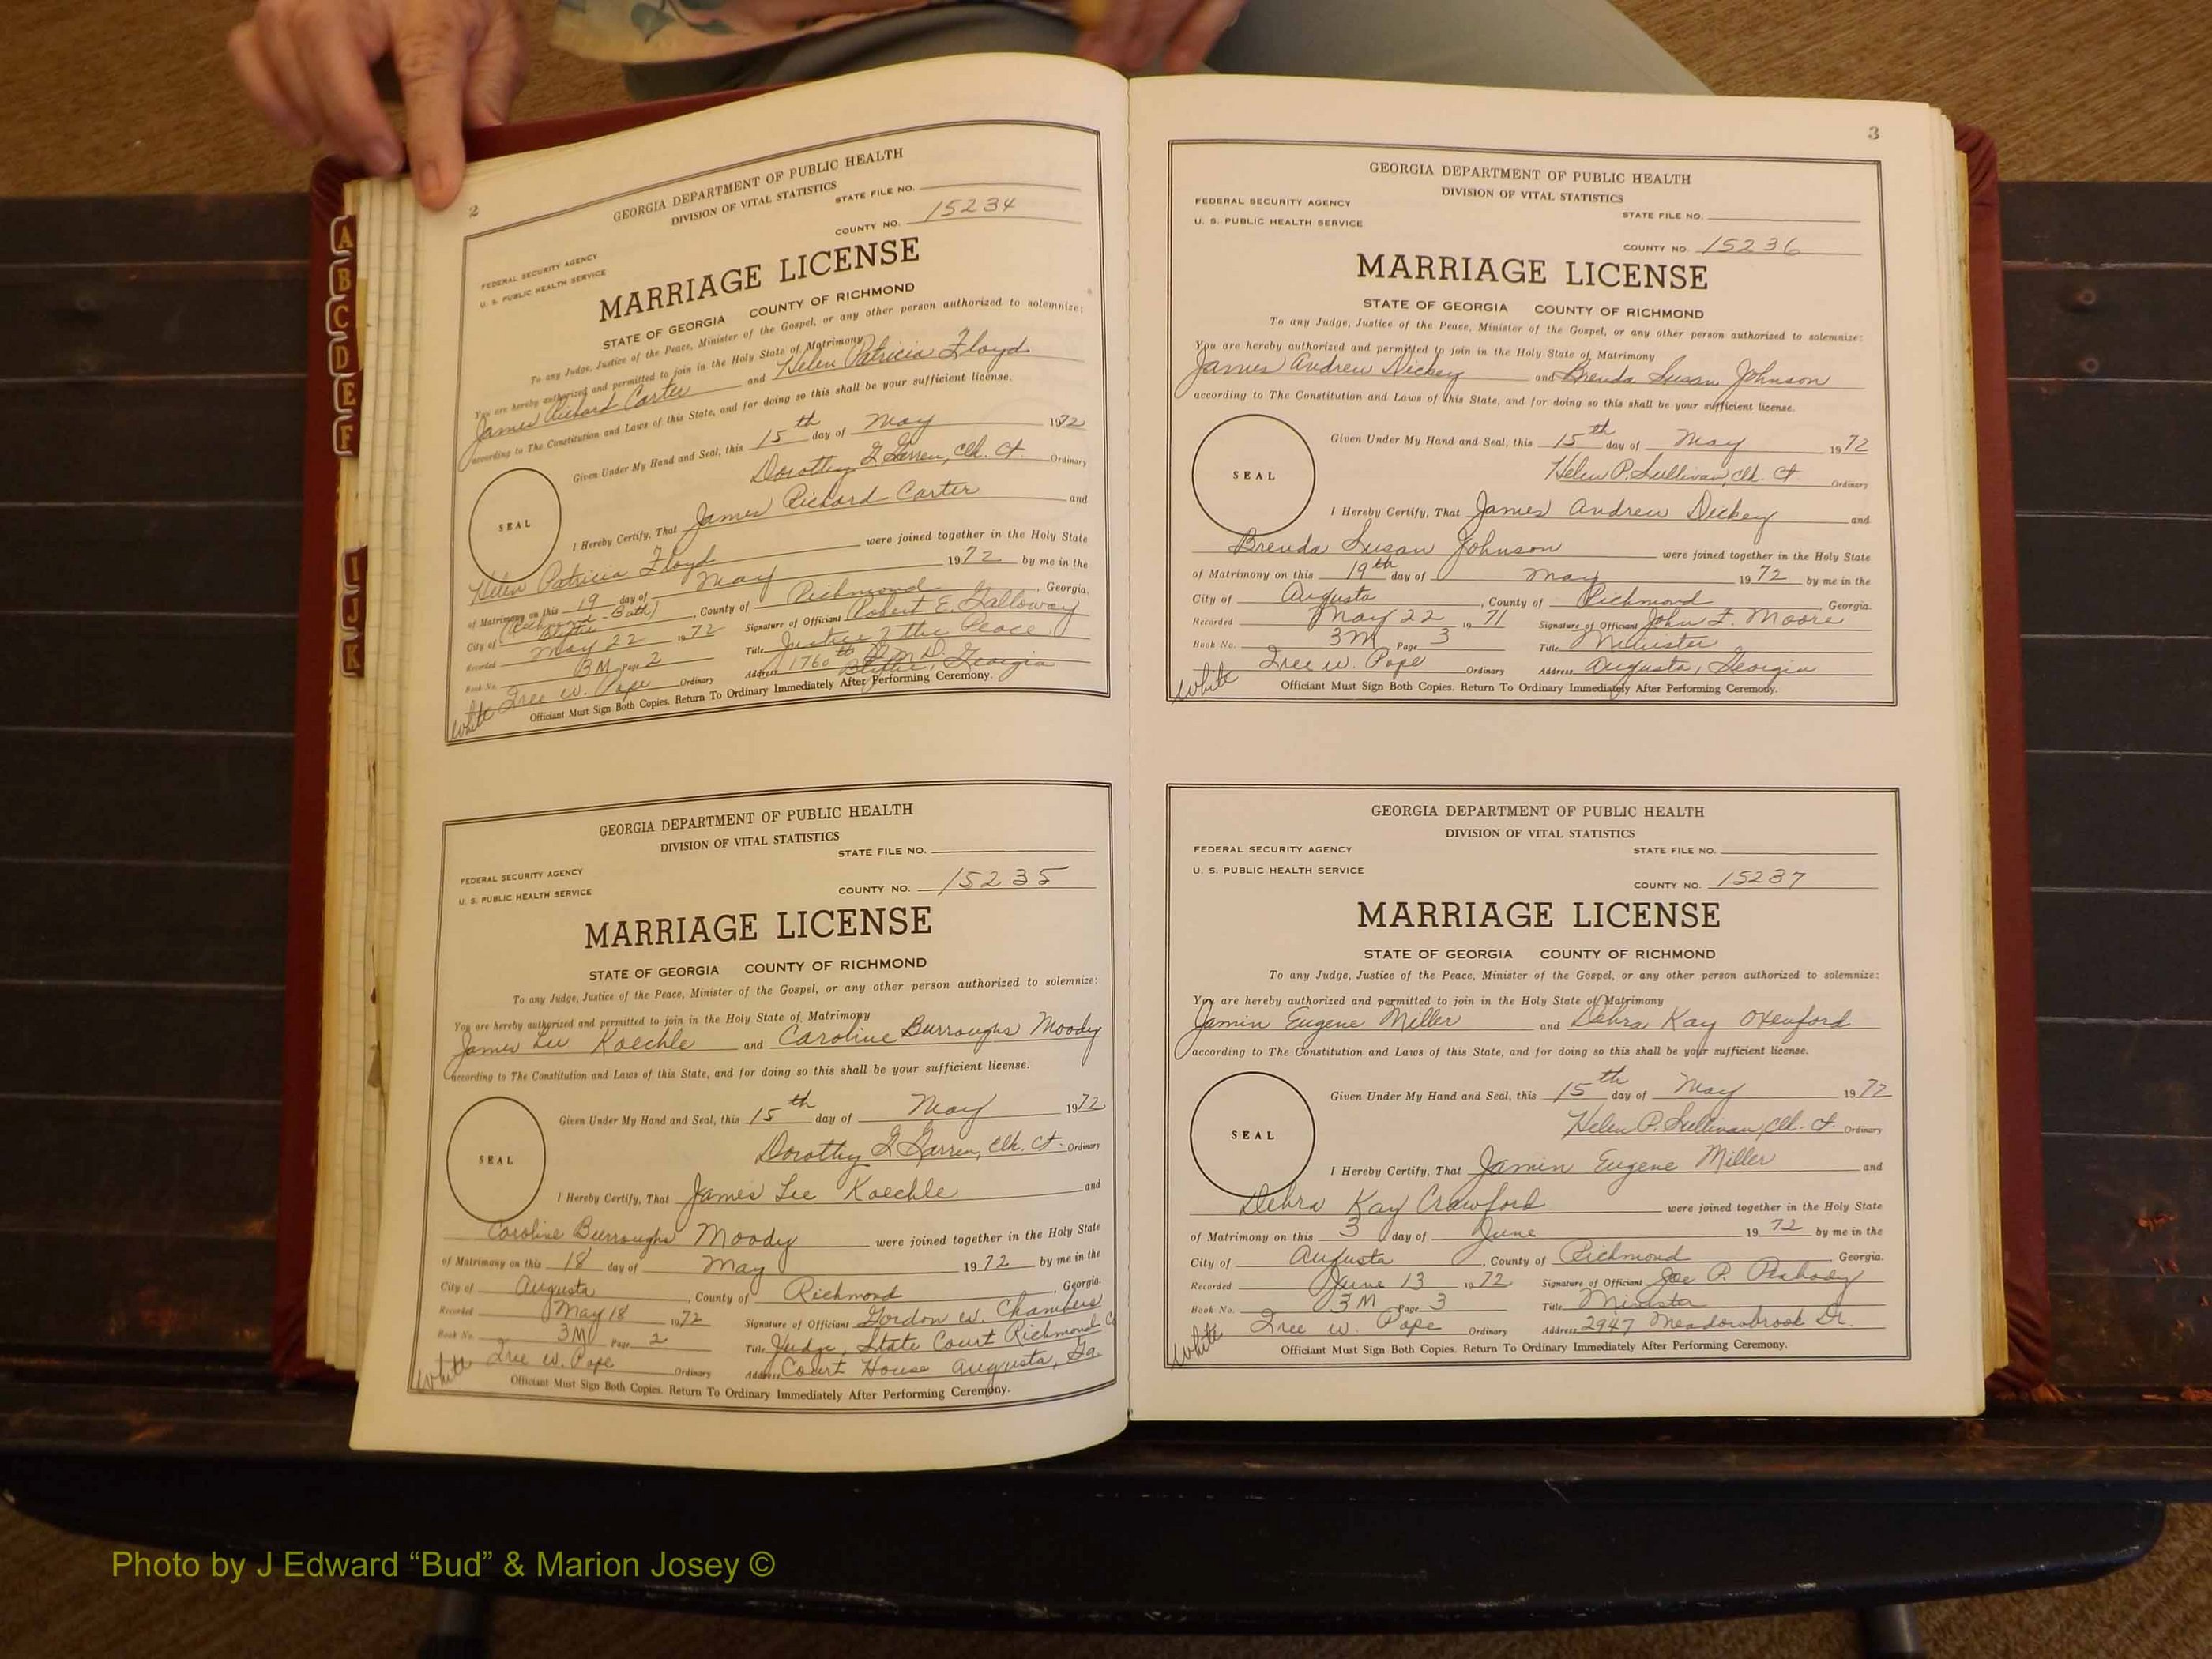 2
GEORGIA DEPARTMENT OF PUBLIC HEALTH
DIVISION OF VITAL STATISTICS
STATE FILE NO.
FEDERAL SECURITY AGENCY
U. S. PUBLIC HEALTH SERVICE
COUNTY NO. 15234
MARRIAGE LICENSE
STATE OF GEORGIA COUNTY OF RICHMOND
To any Judge, Justice of the Peace, Minister of the Gospel, or any other person authorized to solemnize:
You are hereby authorized and permitted to join in the Holy State of Matrimony
James Richard Carter and Helen Patricia Floyd
according to The Constitution and Laws of this State, and for doing so this shall be your sufficient license.
Given Under My Hand and Seal, this 15th day of May 1972
Dorothy G. Garren, Clk. Ct. Ordinary
SEAL
I Hereby Certify, That James Richard Carter and
Helen Patricia Floyd were joined together in the Holy State
of Matrimony on this 19 day of May 1972 by me in the
City of (Richmond - Bath) Blythe, County of Richmond, Georgia.
Recorded May 22 1972 Signature of Officiant Robert E. Galloway
Book No. 3M Page 2 Title Justice of the Peace
Tree W. Pope Ordinary Address 1760th G.M.D. Blythe, Georgia
White
Officiant Must Sign Both Copies. Return To Ordinary Immediately After Performing Ceremony.
GEORGIA DEPARTMENT OF PUBLIC HEALTH
DIVISION OF VITAL STATISTICS
STATE FILE NO.
FEDERAL SECURITY AGENCY
U. S. PUBLIC HEALTH SERVICE
COUNTY NO. 15235
MARRIAGE LICENSE
STATE OF GEORGIA COUNTY OF RICHMOND
To any Judge, Justice of the Peace, Minister of the Gospel, or any other person authorized to solemnize:
You are hereby authorized and permitted to join in the Holy State of Matrimony
James Lee Kaechle and Caroline Burroughs Moody
according to The Constitution and Laws of this State, and for doing so this shall be your sufficient license.
Given Under My Hand and Seal, this 15th day of May 1972
Dorothy G. Garren, Clk. Ct. Ordinary
SEAL
I Hereby Certify, That James Lee Kaechle and
Caroline Burroughs Moody were joined together in the Holy State
of Matrimony on this 18 day of May 1972 by me in the
City of Augusta, County of Richmond, Georgia.
Recorded May 18 1972 Signature of Officiant Gordon W. Chambers
Book No. 3M Page 2 Title Judge, State Court Richmond Co
Tree W. Pope Ordinary Address Court House Augusta, Ga.
White
Officiant Must Sign Both Copies. Return To Ordinary Immediately After Performing Ceremony.
3
GEORGIA DEPARTMENT OF PUBLIC HEALTH
DIVISION OF VITAL STATISTICS
FEDERAL SECURITY AGENCY
STATE FILE NO.
U. S. PUBLIC HEALTH SERVICE
COUNTY NO. 15236
MARRIAGE LICENSE
STATE OF GEORGIA COUNTY OF RICHMOND
To any Judge, Justice of the Peace, Minister of the Gospel, or any other person authorized to solemnize:
You are hereby authorized and permitted to join in the Holy State of Matrimony
James Andrew Dickey and Brenda Susan Johnson
according to The Constitution and Laws of this State, and for doing so this shall be your sufficient license.
Given Under My Hand and Seal, this 15th day of May 1972
Helen P. Sullivan, Clk. Ct. Ordinary
SEAL
I Hereby Certify, That James Andrew Dickey and
Brenda Susan Johnson were joined together in the Holy State
of Matrimony on this 19th day of May 1972 by me in the
City of Augusta, County of Richmond Georgia.
Recorded May 22 1971 Signature of Officiant John F. Moore
Book No. 3M Page 3 Title Minister
Tree W. Pope Ordinary Address Augusta, Georgia
White
Officiant Must Sign Both Copies. Return To Ordinary Immediately After Performing Ceremony.
GEORGIA DEPARTMENT OF PUBLIC HEALTH
DIVISION OF VITAL STATISTICS
FEDERAL SECURITY AGENCY
STATE FILE NO.
U. S. PUBLIC HEALTH SERVICE
COUNTY NO. 15237
MARRIAGE LICENSE
STATE OF GEORGIA COUNTY OF RICHMOND
To any Judge, Justice of the Peace, Minister of the Gospel, or any other person authorized to solemnize:
You are hereby authorized and permitted to join in the Holy State of Matrimony
Jamin Eugene Miller and Debra Kay Oxenford
according to The Constitution and Laws of this State, and for doing so this shall be your sufficient license.
Given Under My Hand and Seal, this 15th day of May 1972
Helen P. Sullivan, Clk. Ct. Ordinary
SEAL
I Hereby Certify, That Jamin Eugene Miller and
Debra Kay Crawford were joined together in the Holy State
of Matrimony on this 3 day of June 1972 by me in the
City of Augusta, County of Richmond Georgia.
Recorded June 13 1972 Signature of Officiant Joe P. Peabody
Book No. 3M Page 3 Title Minister
Tree W. Pope Ordinary Address 2947 Meadowbrook Dr.
White
Officiant Must Sign Both Copies. Return To Ordinary Immediately After Performing Ceremony.
A
B
C
D
E
F
I
J
K
Photo by J Edward “Bud” & Marion Josey ©